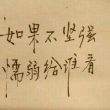 如果不坚强
懦弱给谁看